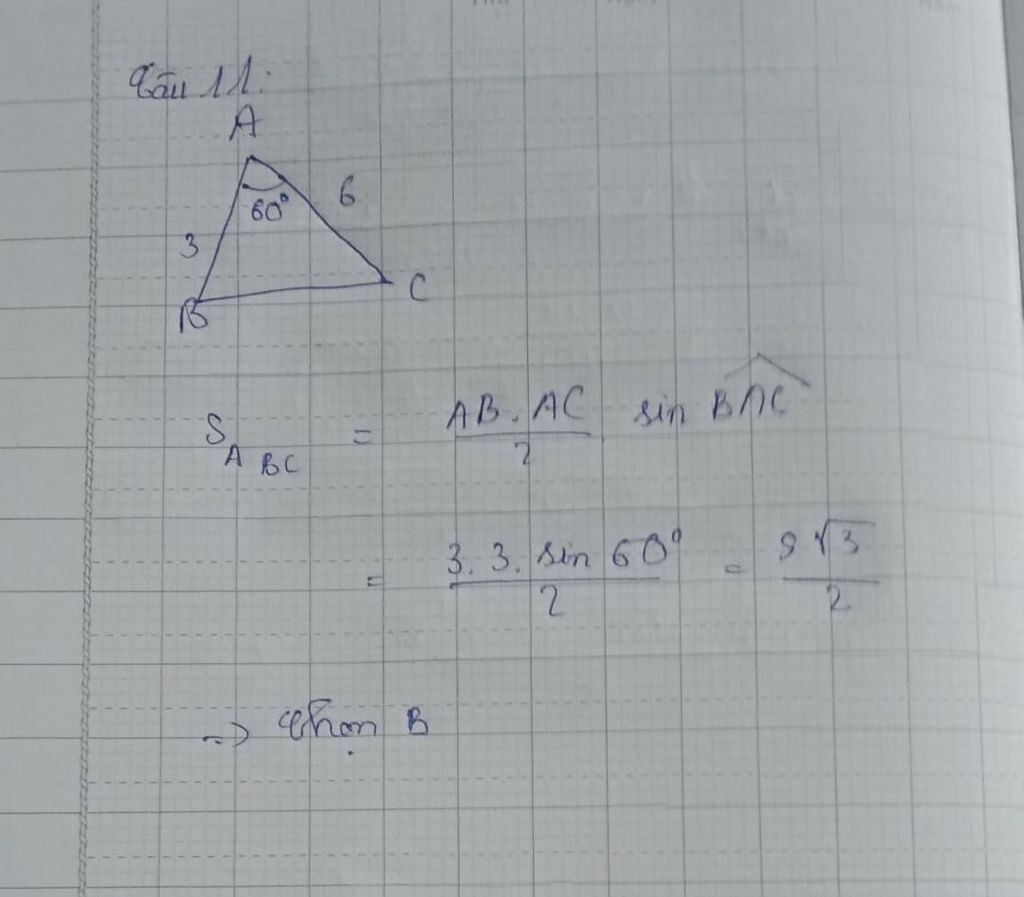 Câu 11:
A
60° 6
3
B C
S_ABC = \frac{AB . AC}{2} sin \widehat{BAC}
= \frac{3. 3. sin 60°}{2} = \frac{9\sqrt{3}}{2}
=> Chọn B